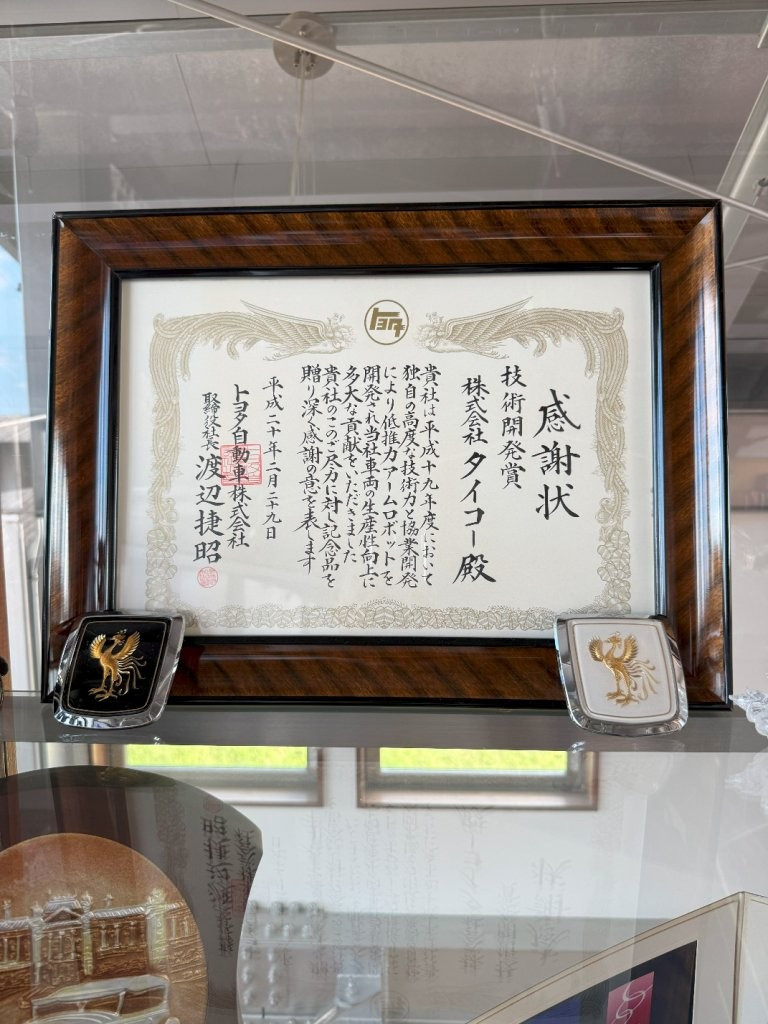 トヨタ
感謝状
技術開発賞
株式会社 タイコー 殿
貴社は平成十九年度において
独自の高度な技術力と協業開発
により低推力アームロボットを
開発され当社車両の生産性向上に
多大な貢献をいただきました
貴社のこのご尽力に対し記念品を
贈り深く感謝の意を表します
平成二十年二月二十九日
トヨタ自動車株式会社
取締役社長 渡辺捷昭